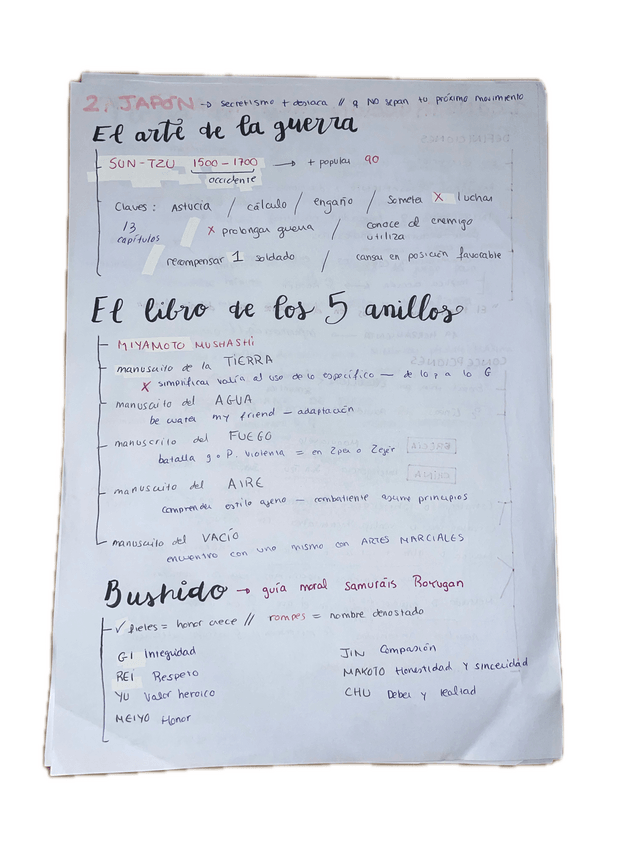 2. JAPÓN → secretismo + destaca // q NO sepan tu próximo movimiento
El arte de la guerra
SUN-TZU 1500-1700 → + popular 90
occidente
Claves: Astucia / cálculo / engaño / Someta X luchar
13 capítulos / X prolongar guerra / conoce al enemigo utiliza
/ recompensar 1 soldado / cansa en posición favorable
El libro de los 5 anillos
MIYAMOTO MUSHASHI
manuscrito de la TIERRA
X simplificar varía al uso de lo específico — de lo p a lo G
manuscrito del AGUA
be water my friend — adaptación
manuscrito del FUEGO
batalla g o P. violenta = en 2per o 2ejer
manuscrito del AIRE
comprender estilo ajeno — combatiente asume principios
manuscrito del VACÍO
encuentro con uno mismo con ARTES MARCIALES
Bushido → guía moral samuráis
✓ fieles = honor crece // rompes = nombre denostado
GI Integridad
REI Respeto
YU Valor heroico
MEIYO Honor
JIN Compasión
MAKOTO Honestidad y sinceridad
CHU Deber y lealtad